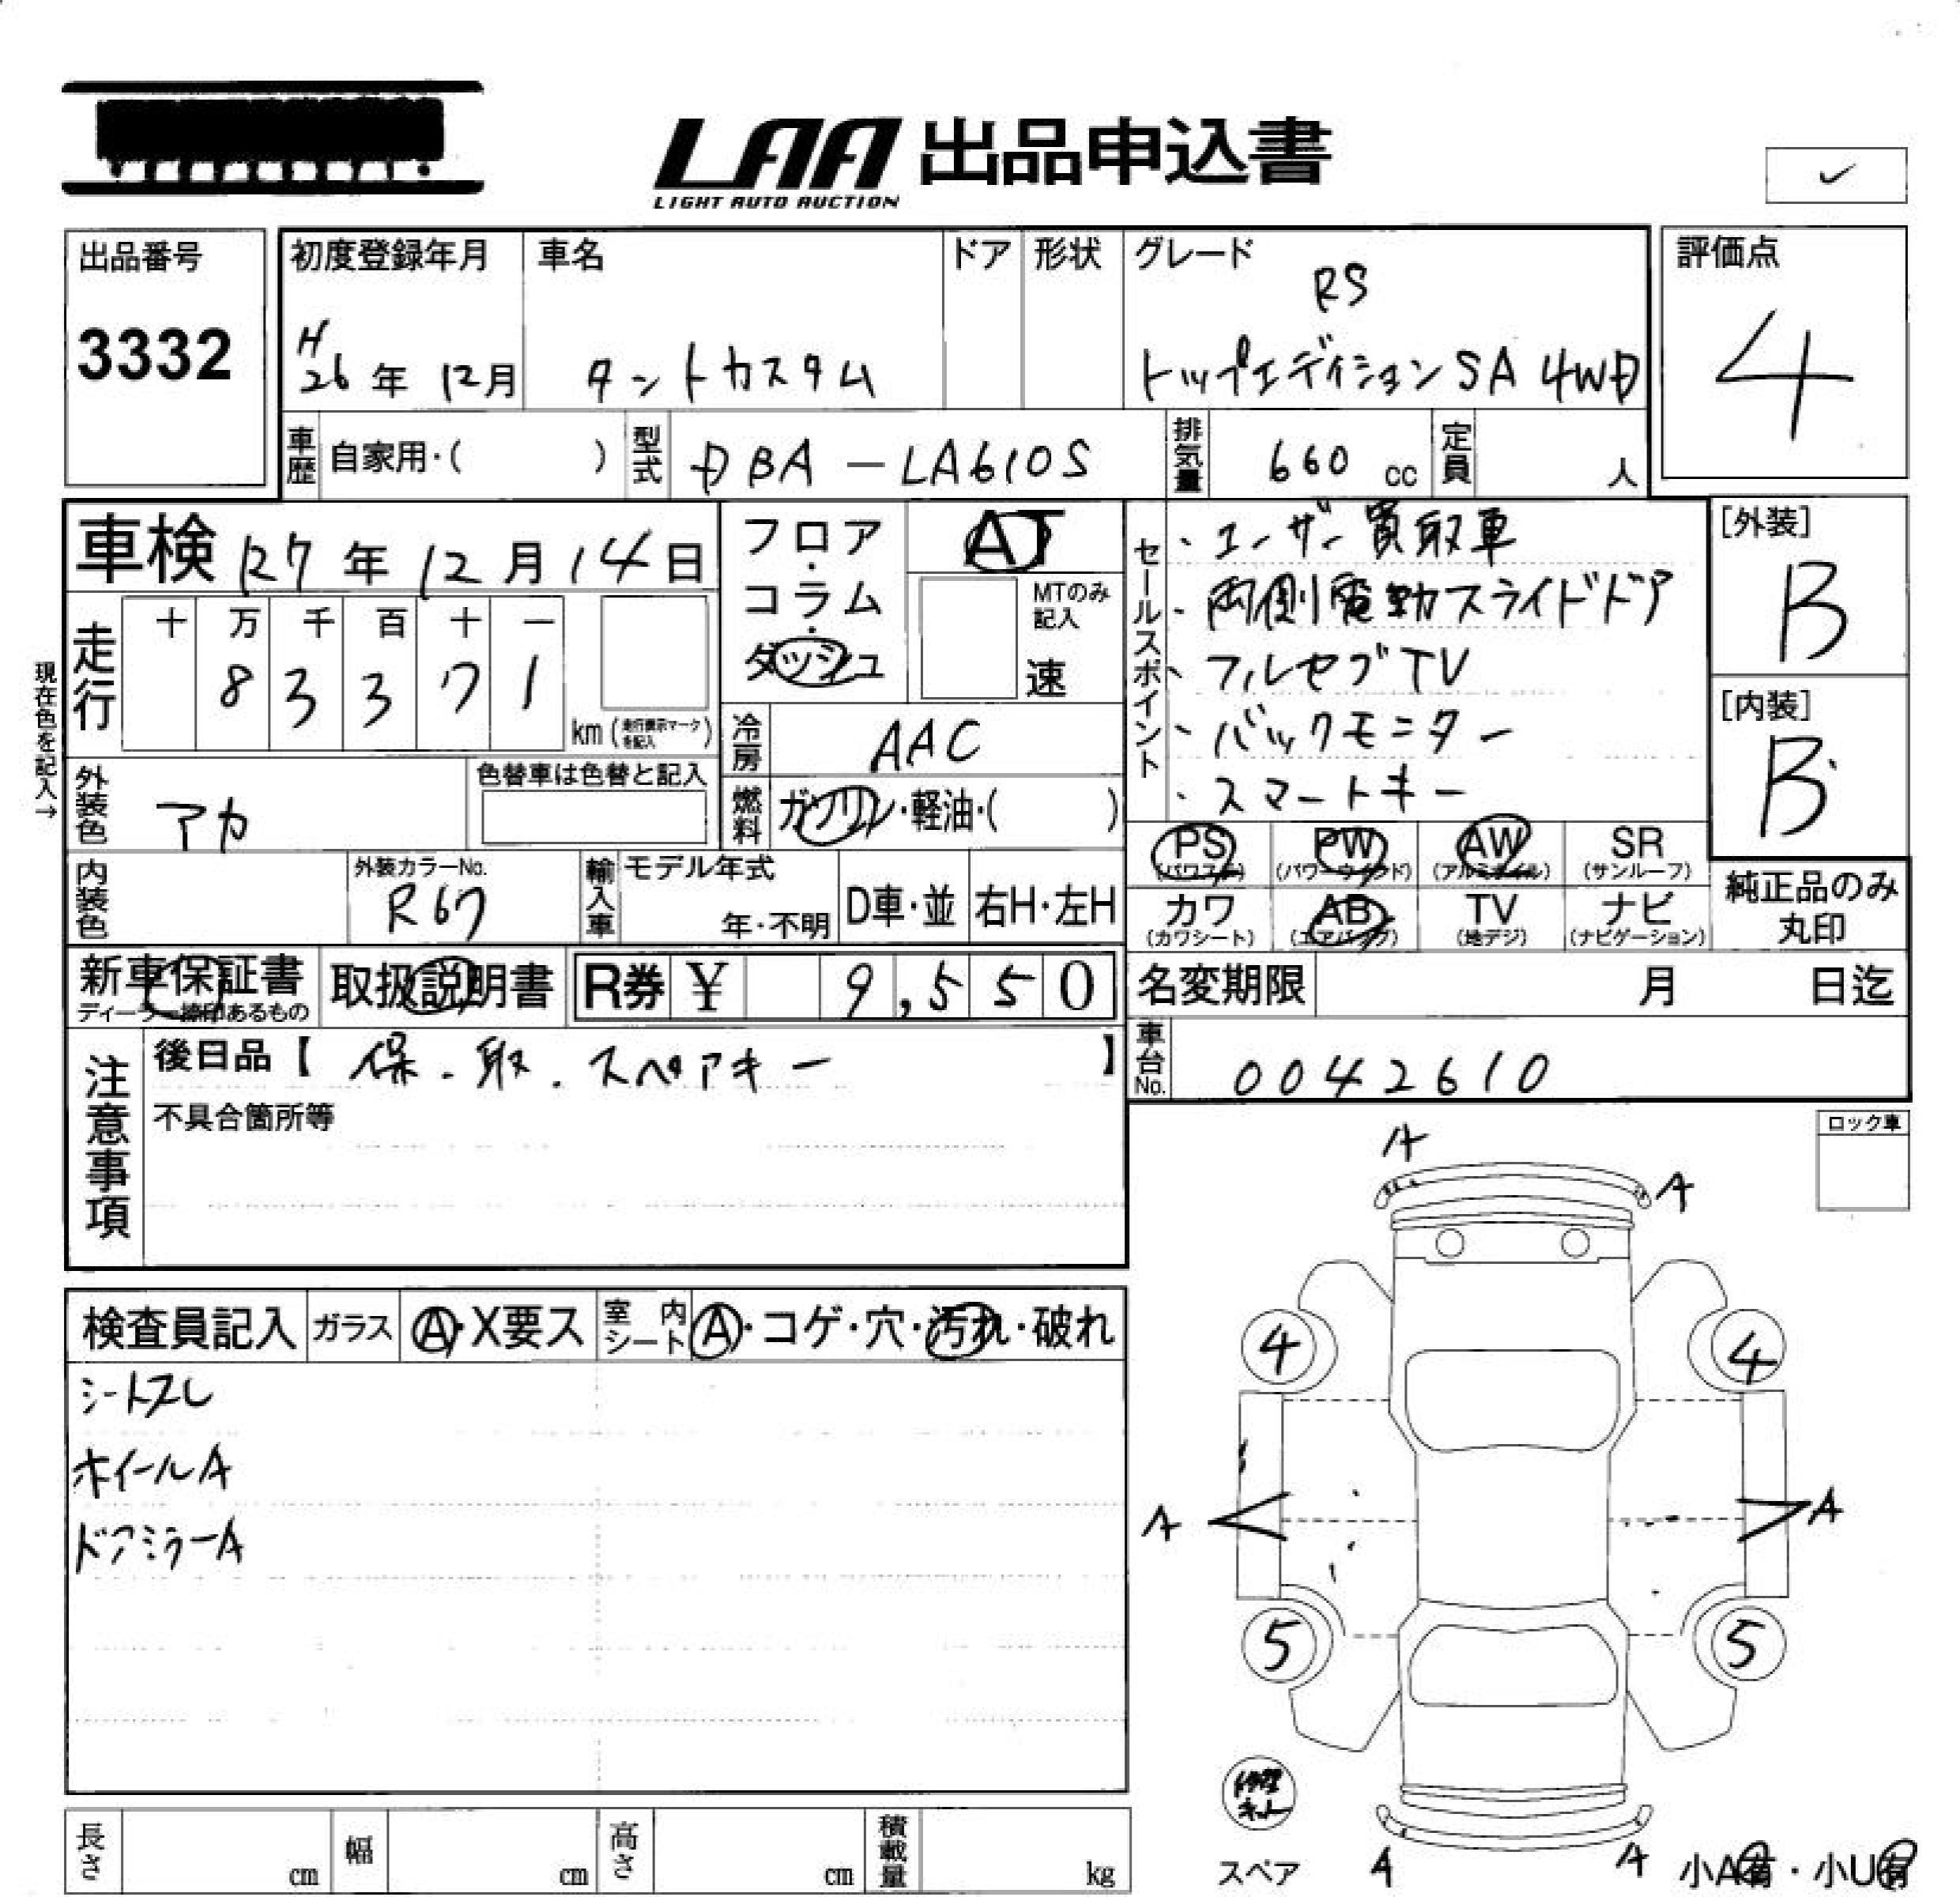 LAA 出品申込書
LIGHT AUTO AUCTION
出品番号
3332
初度登録年月 車名 ドア 形状 グレード
H26年 12月 タントカスタム RS
トップエディションSA 4WD
評価点
4
車歴 自家用・( ) 型式 DBA-LA610S 排気量 660 cc 定員 人
車検 R7年 12月 14日
フロア・コラム・ダッシュ
AT
MTのみ記入
速
走行 十 万 千 百 十 一
8 3 3 7 1
km (走行表示マークを記入)
現在色を記入→
冷房 AAC
外装色 アカ
色替車は色替と記入
燃料 ガソリン・軽油・( )
内装色
外装カラーNo.
R67
輸入車 モデル年式
年・不明
D車・並 右H・左H
セールスポイント
・ユーザー買取車
・両側電動スライドドア
・フルセグTV
・バックモニター
・スマートキー
[外装]
B
[内装]
B
PS (パワステ) PW (パワーウインド) AW (アルミホイル) SR (サンルーフ)
カワ (カワシート) AB (エアバッグ) TV (地デジ) ナビ (ナビゲーション)
純正品のみ
丸印
新車保証書
ディーラー捺印あるもの
取扱説明書
R券 ¥ 9,550
名変期限 月 日迄
車台No. 0042610
注意事項
後日品【 保.取.スペアキー 】
不具合箇所等
ロック車
検査員記入 ガラス A・X要ス 室内シート A・コゲ・穴・汚れ・破れ
シートスレ
ホイールA
ドアミラーA
A
A
4 4
A A
5 5
修理キット
スペア
A A
小A有・小U有
長さ cm 幅 cm 高さ cm 積載量 kg